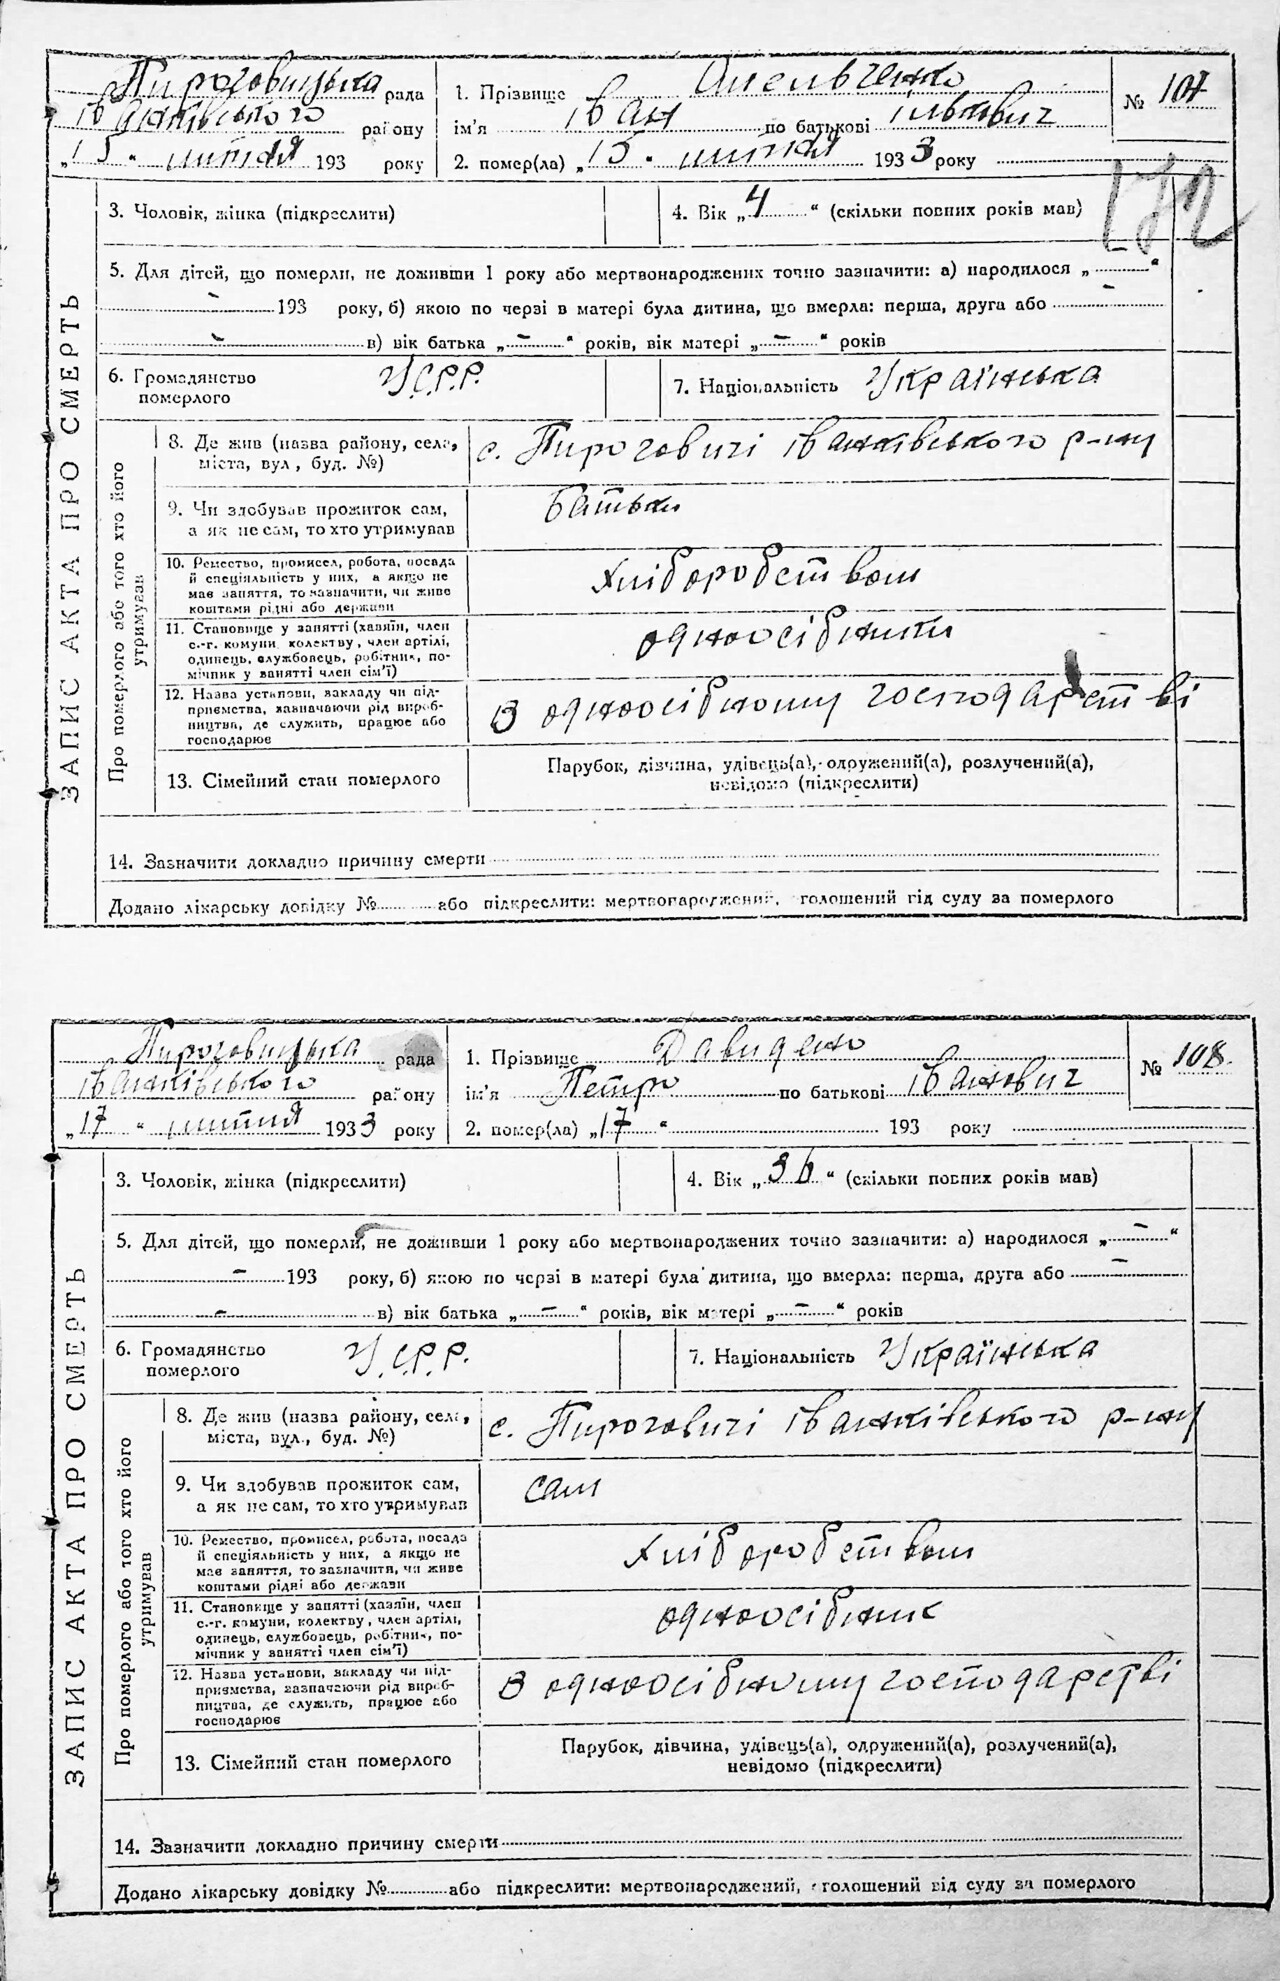 Пироговицька рада
Іванківського району
„15 " липня 193 року
1. Прізвище Омельченко
ім'я Іван по батьковіІлькович
2. помер(ла) „15 " липня 1933 року
№ 107
172
ЗАПИС АКТА ПРО СМЕРТЬ
3. Чоловік, жінка (підкреслити)
4. Вік „4" (скільки повних років мав)
5. Для дітей, що померли, не доживши 1 року або мертвонароджених точно зазначити: а) народилося „ - "
- 193 року, б) якою по черзі в матері була дитина, що вмерла: перша, друга або -
- в) вік батька „ - " років, вік матері „ - " років
6. Громадянство померлого У.С.Р.Р.
7. Національність Українська
Про померлого або того хто його утримував
8. Де жив (назва району, села, міста, вул., буд. №)
с. Пироговичі Іванківського р-ну
9. Чи здобував прожиток сам, а як не сам, то хто утримував
Батьки
10. Ремество, промисел, робота, посада й спеціяльність у них, а якщо не має заняття, то зазначити, чи живе коштами рідні або держави
Хліборобством
11. Становище у занятті (хазяїн, член с.-г. комуни, колектву, член артілі, одинець, службовець, робітник, помічник у занятті член сім'ї)
одноосібники
12. Назва установи, закладу чи підприємства, зазначаючи рід виробництва, де служить, працює або господарює
В одноосібному господарстві
13. Сімейний стан померлого
Парубок, дівчина, удівець(а), одружений(а), розлучений(а),
невідомо (підкреслити)
14. Зазначити докладно причину смерти
Додано лікарську довідку № або підкреслити: мертвонароджений, оголошений від суду за померлого
Пироговицька рада
Іванківського району
„17 " липня 1933 року
1. Прізвище Давиденко
ім'я Петро по батькові Іванович
2. помер(ла) „17 " 193 року
№ 108
ЗАПИС АКТА ПРО СМЕРТЬ
3. Чоловік, жінка (підкреслити)
4. Вік „36" (скільки повних років мав)
5. Для дітей, що померли, не доживши 1 року або мертвонароджених точно зазначити: а) народилося „ - "
- 193 року, б) якою по черзі в матері була дитина, що вмерла: перша, друга або -
- в) вік батька „ - " років, вік матері „ - " років
6. Громадянство померлого У.С.Р.Р.
7. Національність Українська
Про померлого або того хто його утримував
8. Де жив (назва району, села, міста, вул., буд. №)
с. Пироговичі Іванківського р-ну
9. Чи здобував прожиток сам, а як не сам, то хто утримував
сам
10. Ремество, промисел, робота, посада й спеціяльність у них, а якщо не має заняття, то зазначити, чи живе коштами рідні або держави
Хліборобством
11. Становище у занятті (хазяїн, член с.-г. комуни, колектву, член артілі, одинець, службовець, робітник, помічник у занятті член сім'ї)
одноосібник
12. Назва установи, закладу чи підприємства, зазначаючи рід виробництва, де служить, працює або господарює
В одноосібному господарстві
13. Сімейний стан померлого
Парубок, дівчина, удівець(а), одружений(а), розлучений(а),
невідомо (підкреслити)
14. Зазначити докладно причину смерти
Додано лікарську довідку № або підкреслити: мертвонароджений, оголошений від суду за померлого